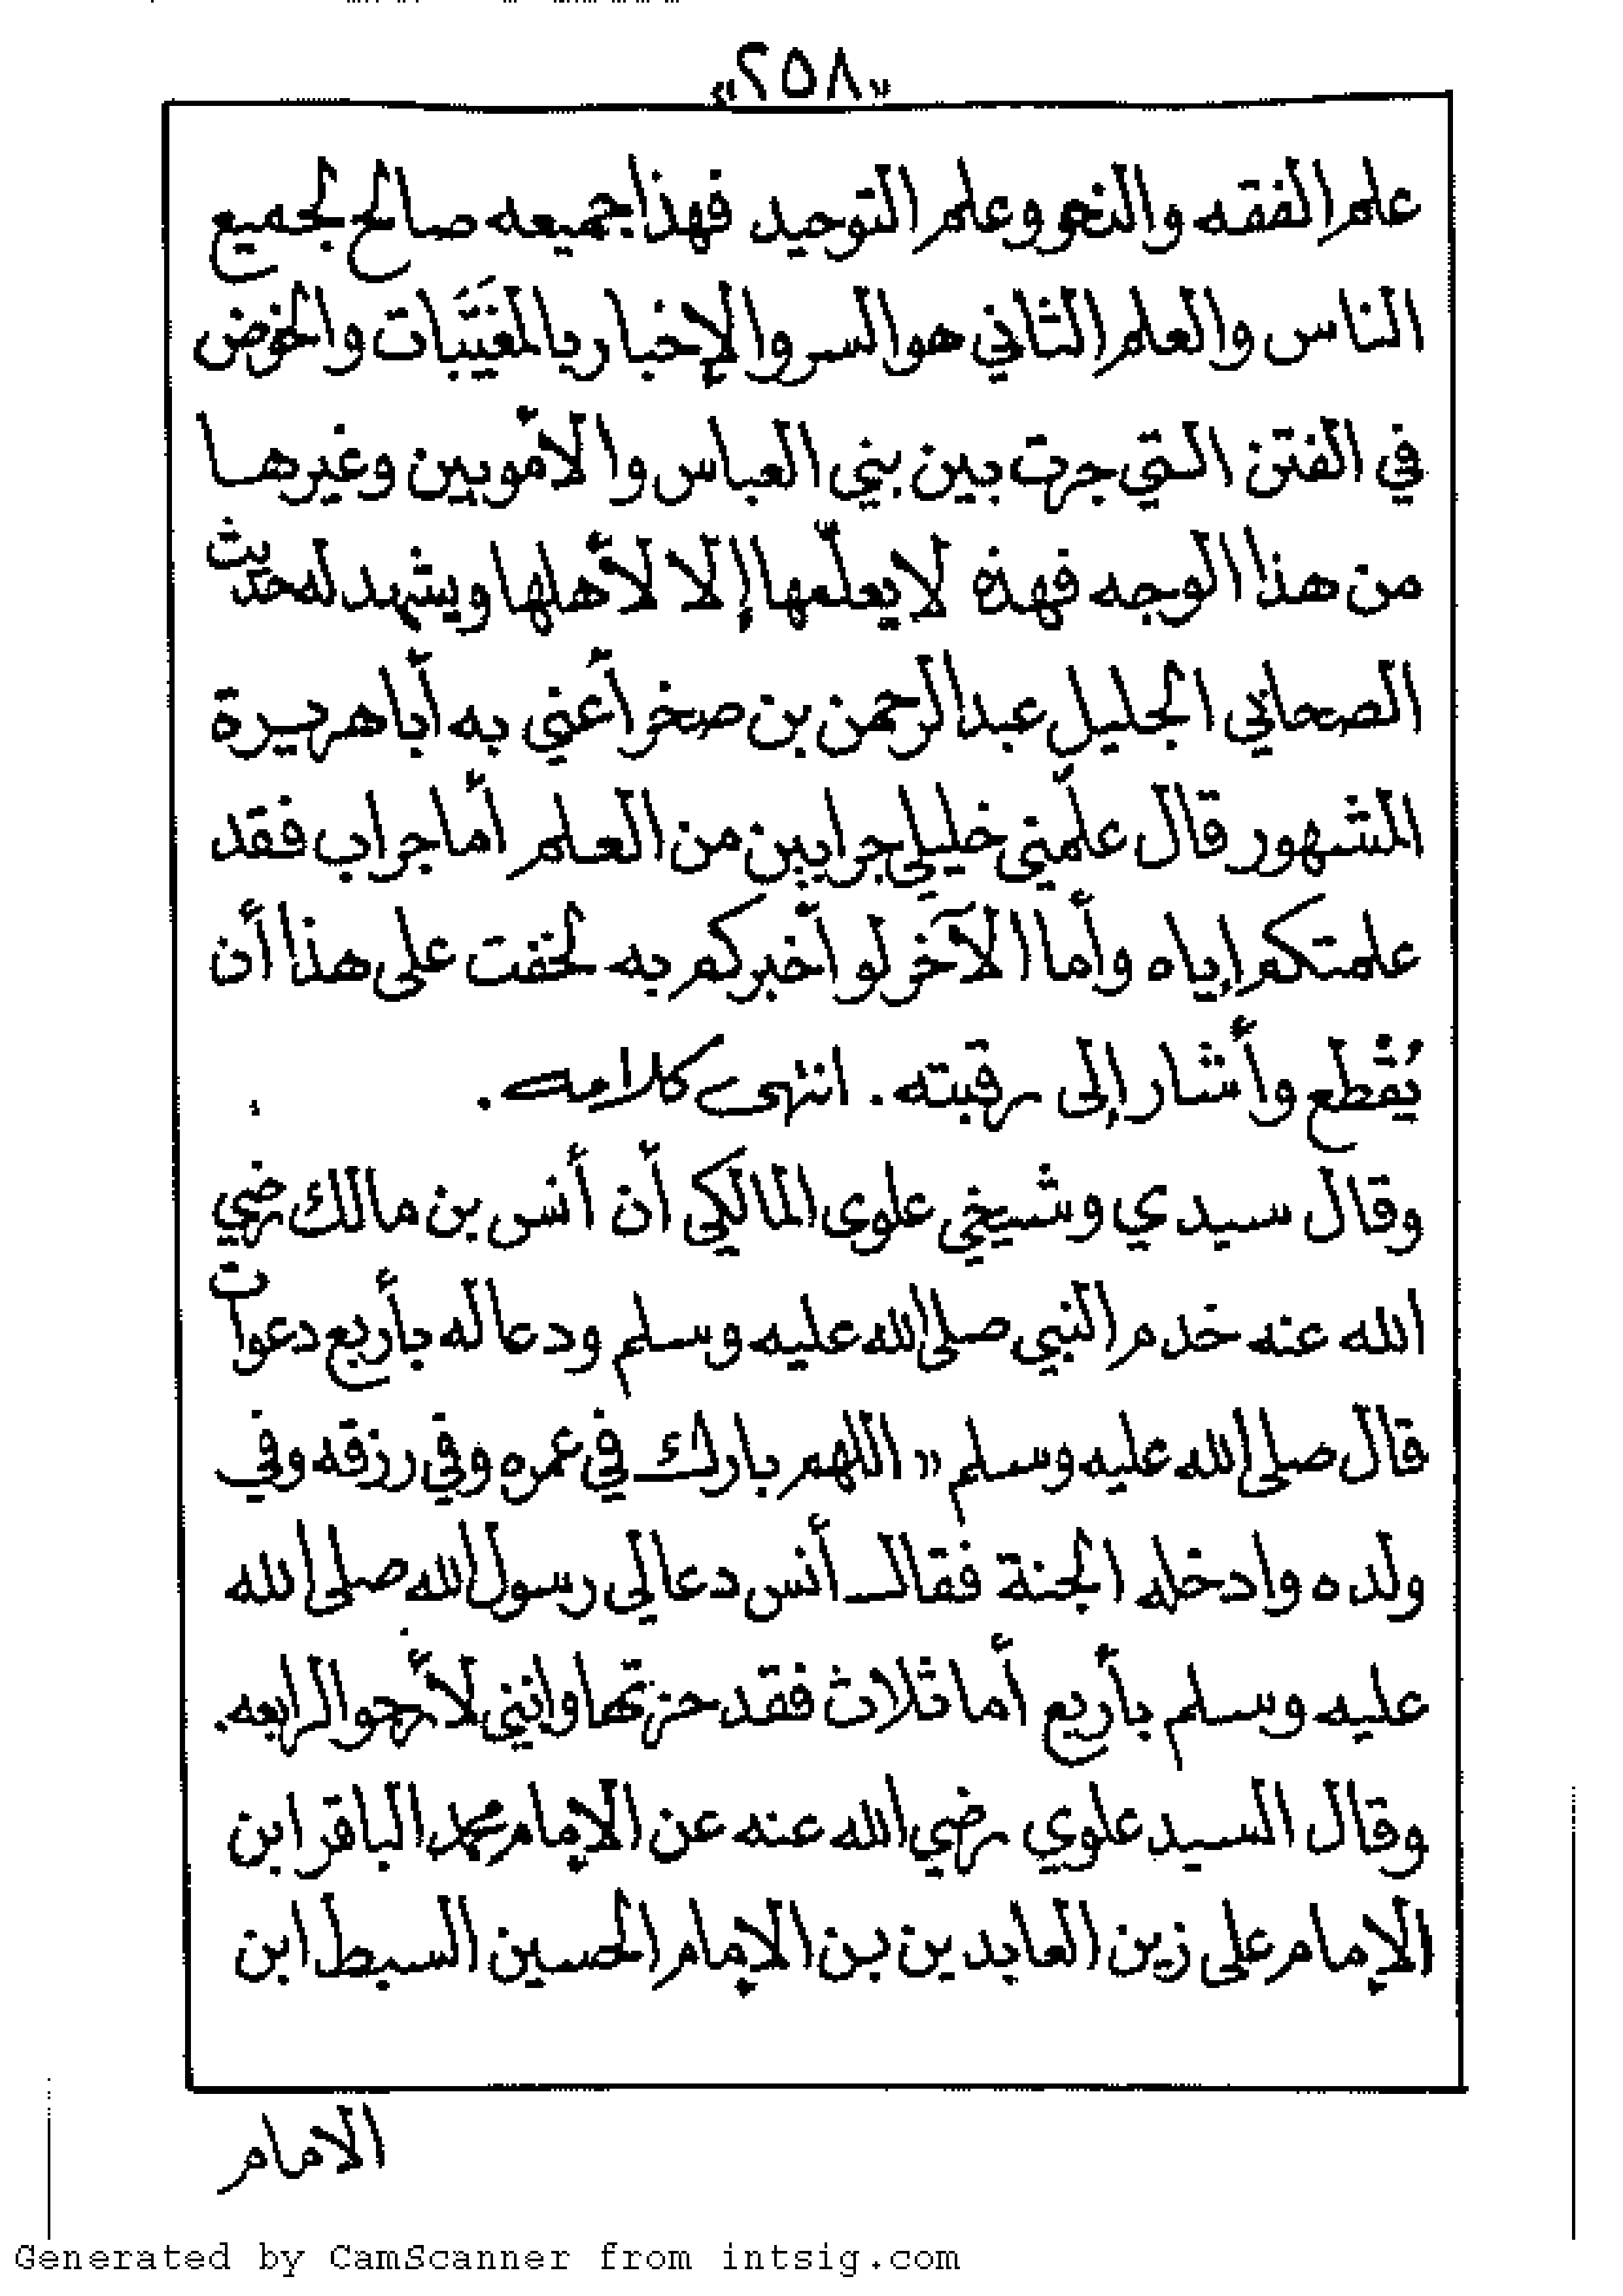 «٢٥٨»
علم الفقه والنحو وعلم التوحيد فهذا جميعه صالح لجميع
الناس والعلم الثاني هو السر والإخبار بالمغَيَّبات والخوض
في الفتن التي جرت بين بني العباس والأمويين وغيرها
من هذا الوجه فهذه لا يعلّمها إلا لأهلها ويشهد له حديث
الصحابي الجليل عبد الرحمن بن صخر أعني به أبا هريرة
المشهور قال علمني خليلي جرابين من العلم أما جراب فقد
علمتكم إياه وأما الآخر لو أخبركم به لخفت على هذا أن
يُقطع وأشار إلى رقبته . انتهى كلامه .
وقال سيدي وشيخي علوى المالكي أن أنس بن مالك رضي
الله عنه خدم النبي صلى الله عليه وسلم ودعا له بأربع دعوات
قال صلى الله عليه وسلم « اللهم بارك في عمره وفي رزقه وفي
ولده وادخله الجنة فقال أنس دعا لي رسول الله صلى الله
عليه وسلم بأربع أما ثلاث فقد حزتها وانني لأرجو الرابعه .
وقال السيد علوي رضي الله عنه عن الإمام محمد الباقر ابن
الإمام على زين العابدين بن الإمام الحسين السبط ابن
الامام
Generated by CamScanner from intsig.com